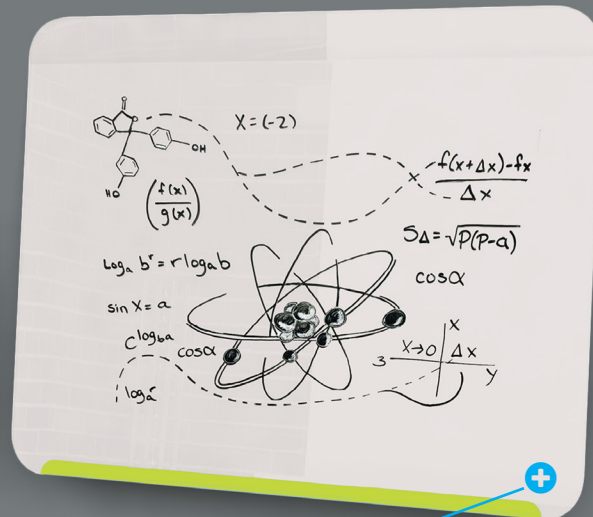 O
O
OH
HO
X=(-2)
(f(x)/g(x))
f(x+Δx)-fx
Δx
SΔ=√P(P-a)
Logₐ bʳ=rlogab
cosα
sin X=a
C^logba
cosα
X
X→0 Δx
3
y